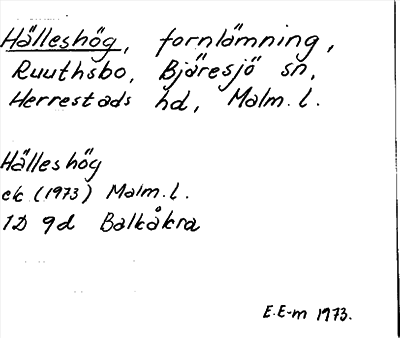 Hälleshög, fornlämning,
Ruuthsbo, Bjäresjö sn,
Herrestads hd, Malm. l.
Hälleshög
ek (1973) Malm. l.
1D 9d Balkåkra
E. E-m 1973.